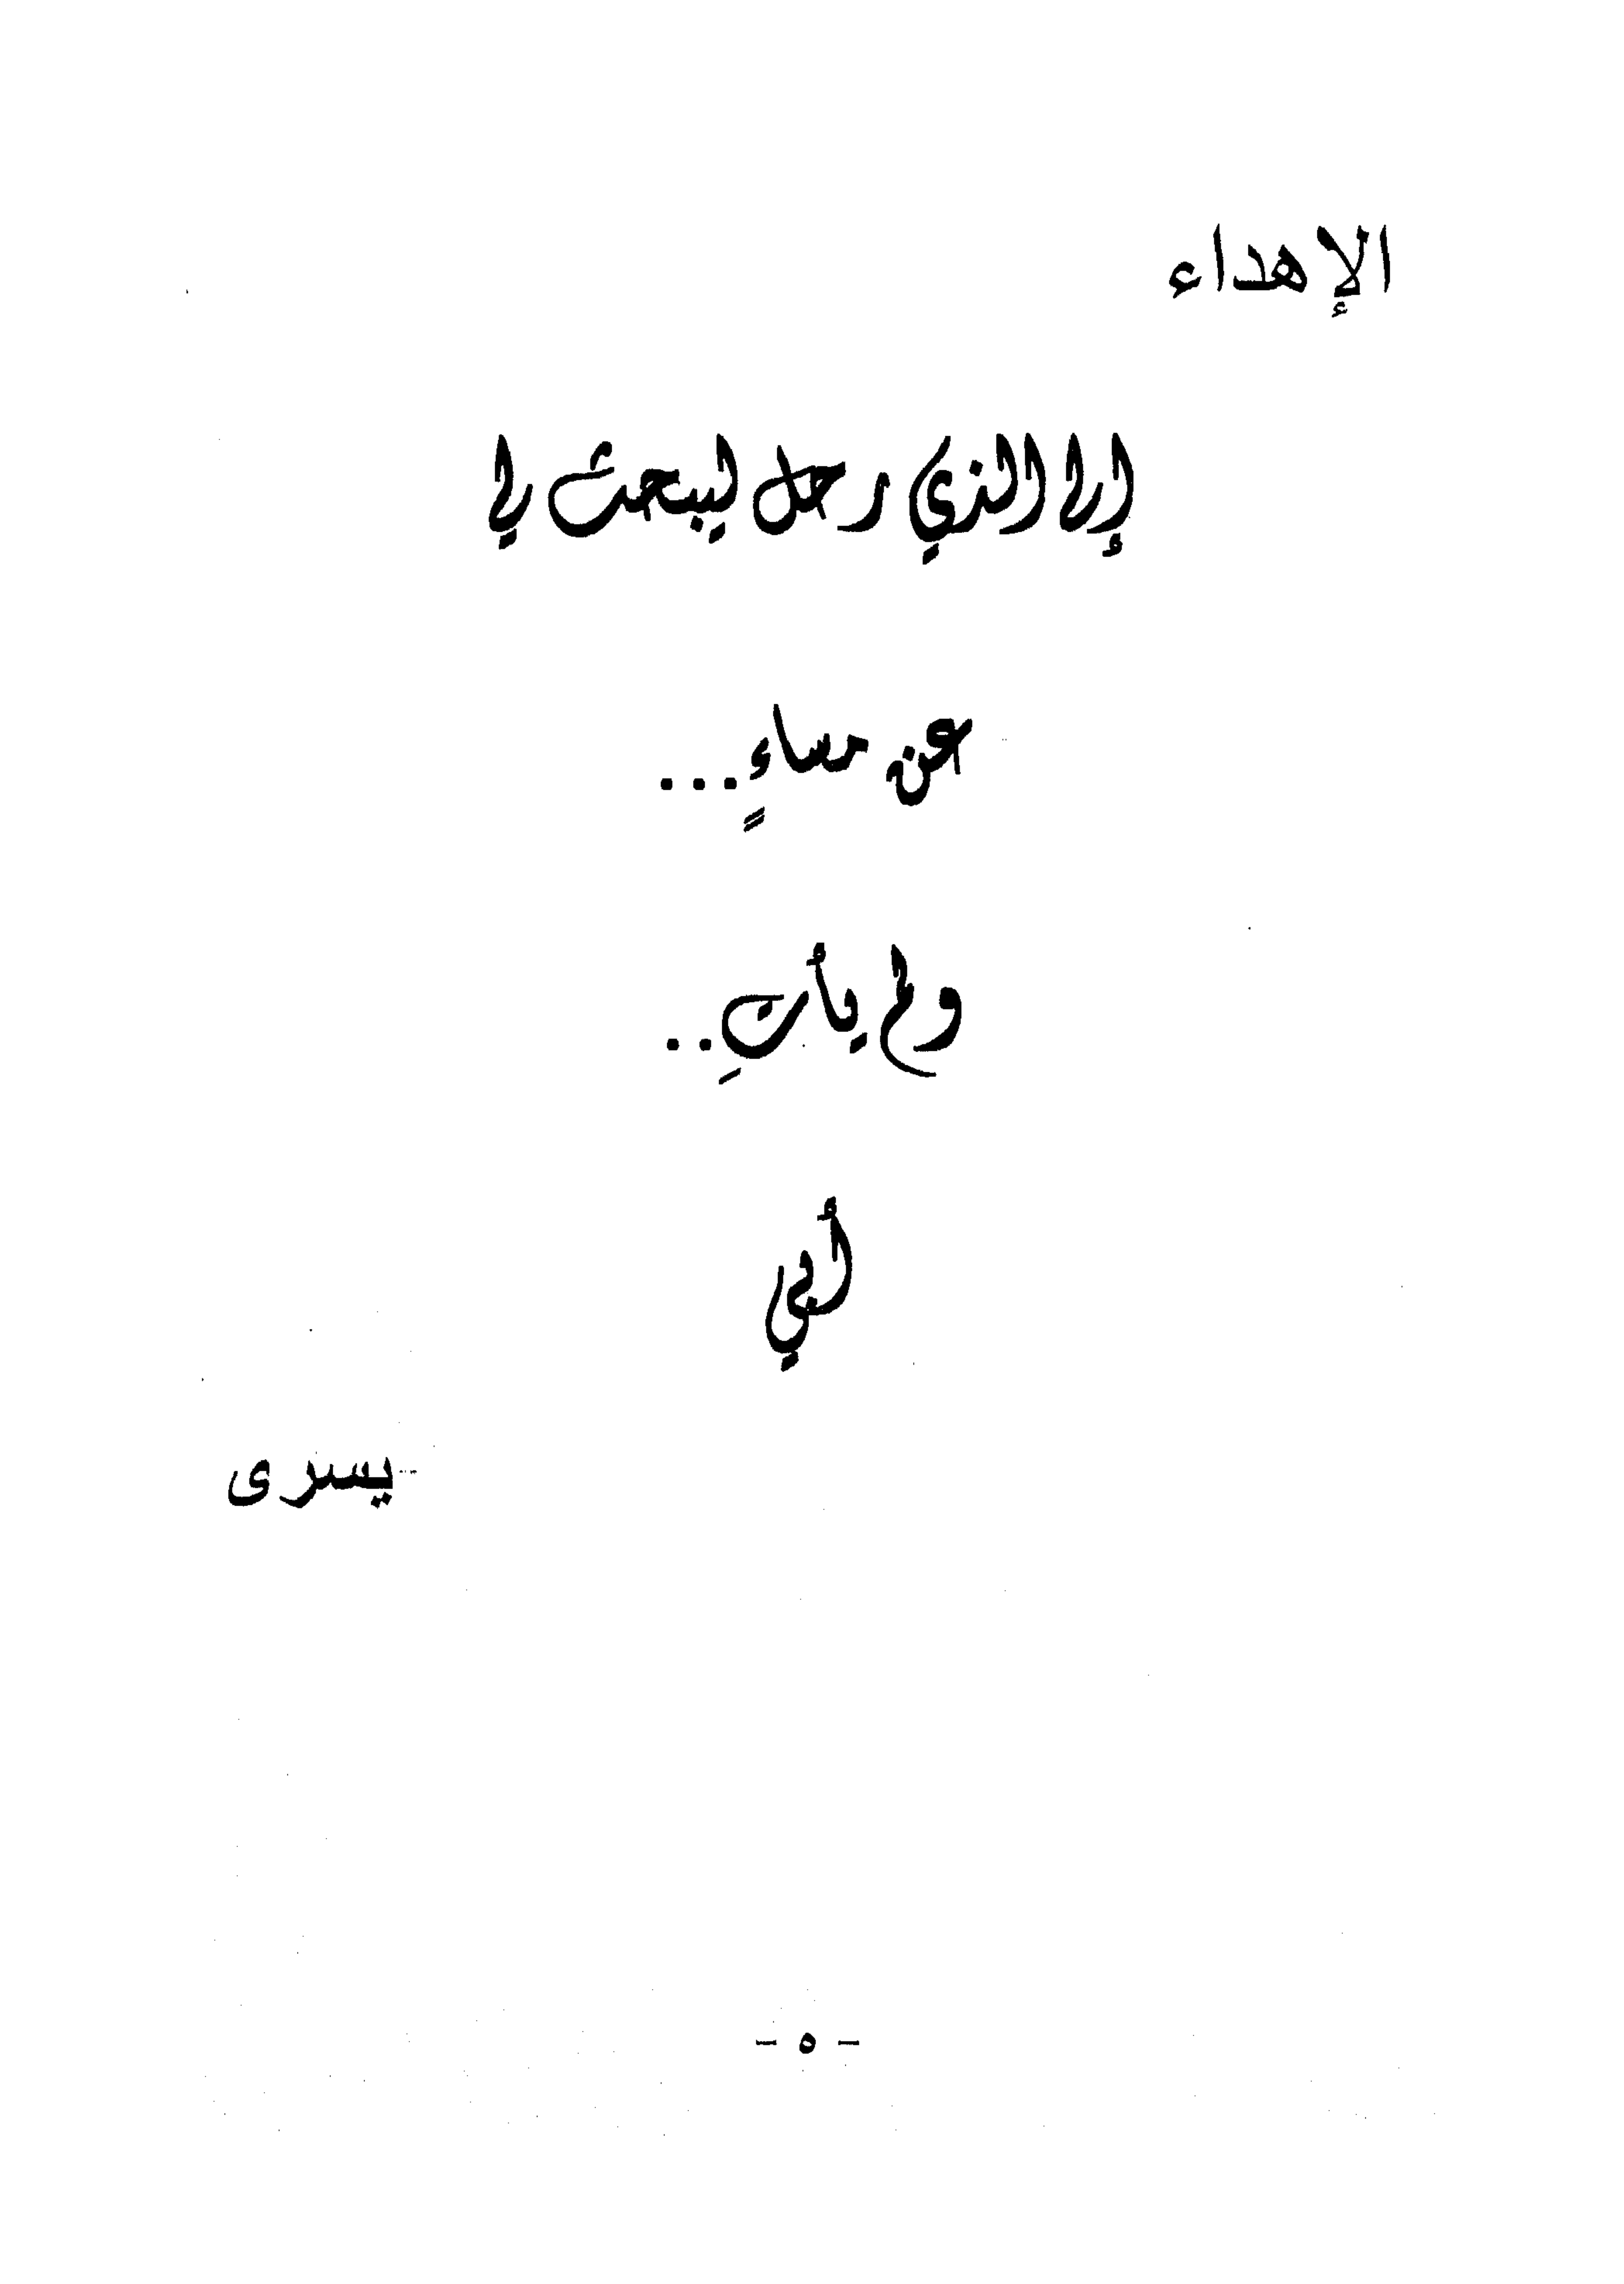 الإهداء
إلى الذي رحل ليبحث لي
عن مساءٍ...
ولم يأتِ..
أبي
يسرى
- ٥ -